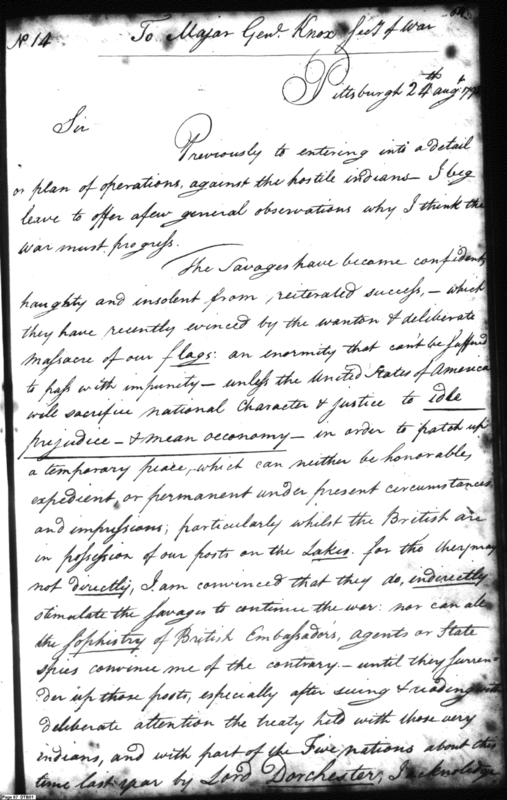 No 14
To Major Genl. Knox Secy of War
Pittsburgh 24th augt 179
Sir
Previously to entering into a detail
or plan of operations, against the hostile indians — I beg
leave to offer a few general observations why I think the
war must progress.
The Savages have become confident,
haughty and insolent from, reiterated success, — which
they have recently evinced by the wanton & deliberate
massacre of our flags: an enormity that can't be suffered
to pass with impunity — unless the United States of America
will sacrifice national Character & justice to idle
prejudice — & mean oeconomy — in order to patch up
a temporary peace, which can neither be honorable,
expedient, or permanent under present circumstances
and impressions; particularly whilst the British are
in possession of our posts on the Lakes. for tho they may
not directly, I am convinced that they do, indirectly
stimulate the Savages to continue the war: nor can all
the Sophistry of British Embassadors, agents or State
spies convince me of the contrary — until they surren-
der up those posts, especially after seeing & reading with
deliberate attention the treaty held with those very
indians, and with part of the Five nations about this
time last year by Lord Dorchester, I acknoledge